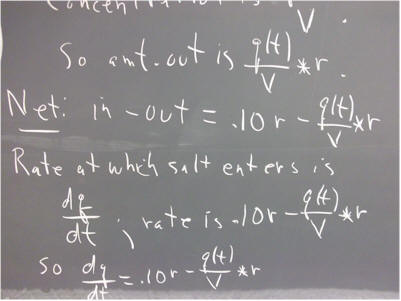 Concentration is /V.
So amt. out is q(t)/V * r.
Net: in - out = .10r - q(t)/V * r
Rate at which salt enters is
dq/dt ; rate is .10r - q(t)/V * r
so dq/dt = .10r - q(t)/V * r